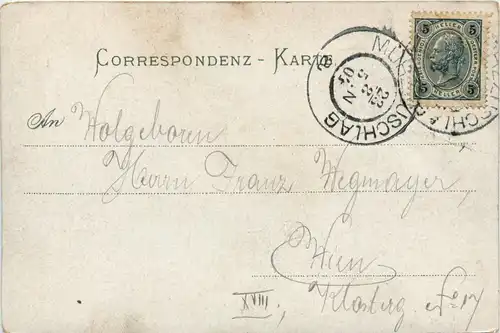 CORRESPONDENZ - KARTE
5 HELLER 5
MÜRZZUSCHLAG
An Wolgeboren
Herrn Franz Wegmayer,
Wien
XVIII, Klosterg No 17